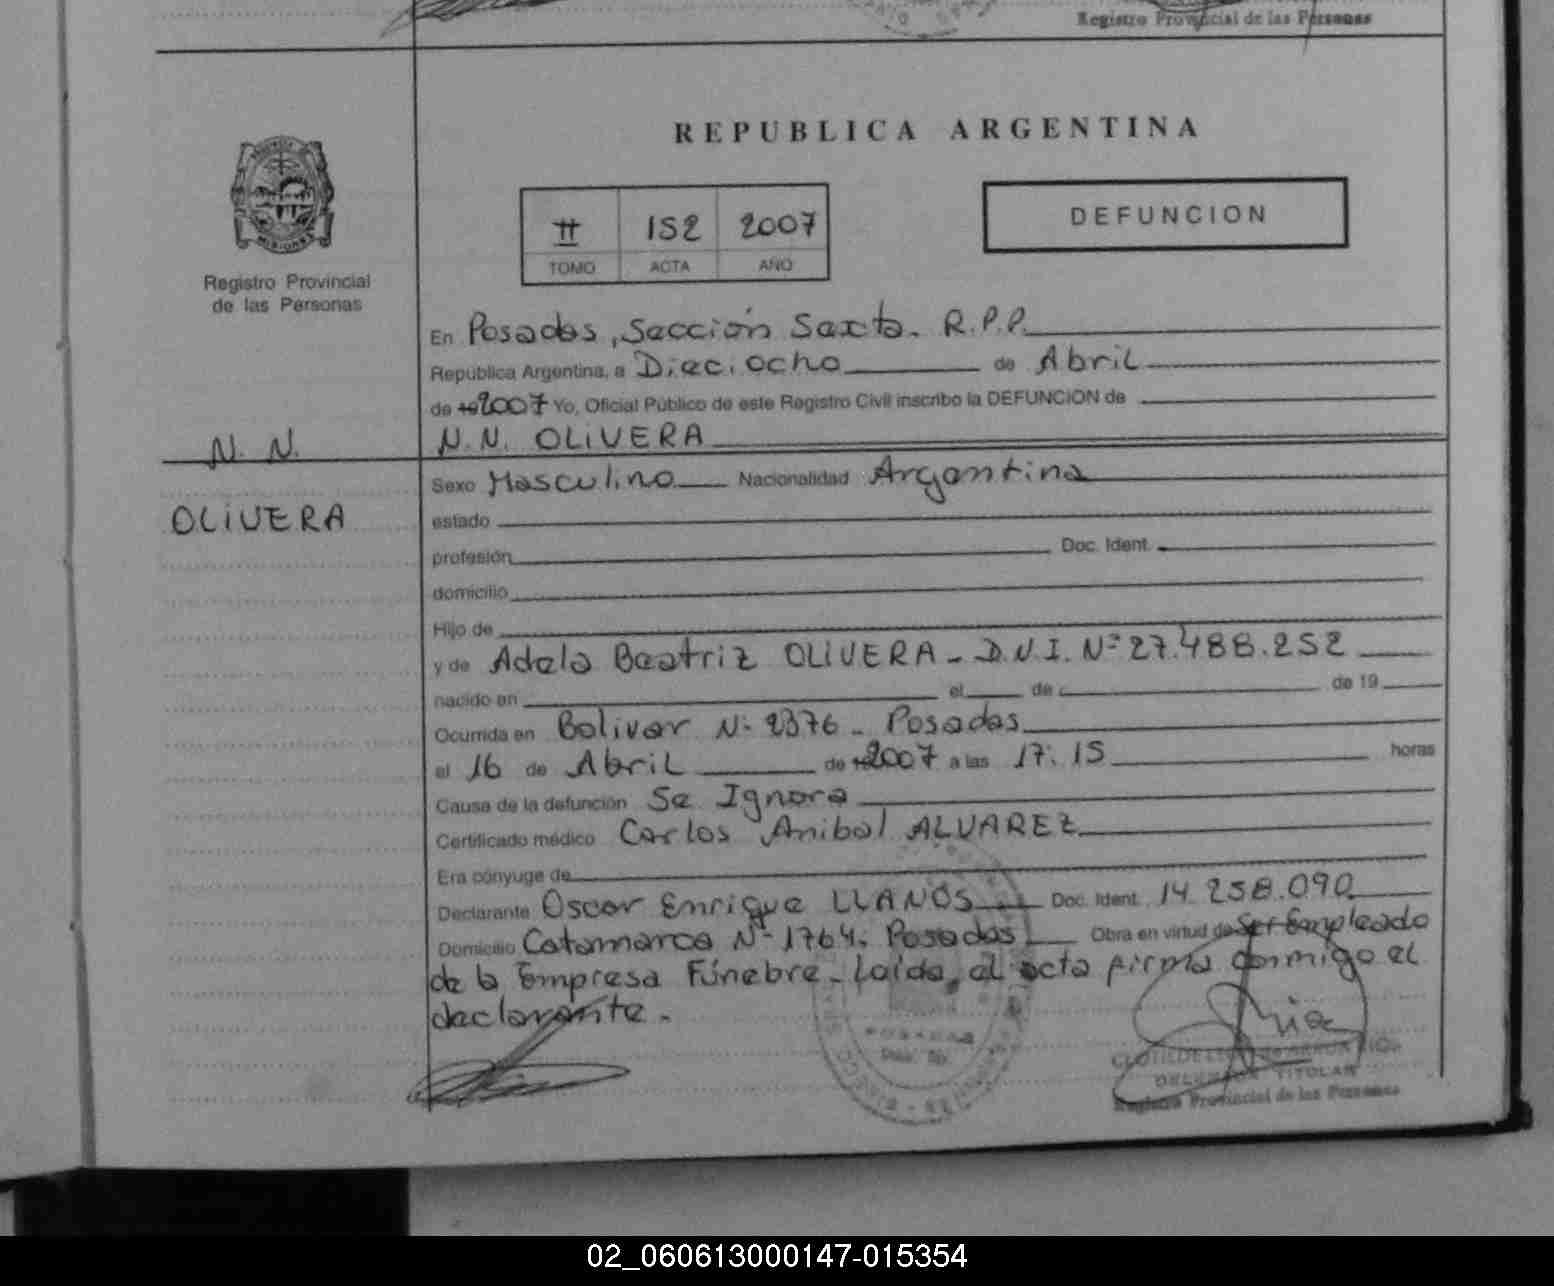 Registro Provincial de las Personas
REPUBLICA ARGENTINA
II 152 2007
TOMO ACTA AÑO
DEFUNCION
MISIONES
Registro Provincial
de las Personas
En Posadas, Sección Sexta. R.P.P.
República Argentina, a Dieciocho de Abril
de 19 2007 Yo, Oficial Público de este Registro Civil inscribo la DEFUNCION de
N. N.
N.N. OLIVERA
OLIVERA
Sexo Masculino Nacionalidad Argentina
estado
profesión Doc. Ident.
domicilio
Hijo de
y de Adela Beatriz OLIVERA - D.N.I. Nº 27.488.252
nacido en el de de 19
Ocurrida en Bolivar Nº 2376 - Posadas
el 16 de Abril de 19 2007 a las 17:15 horas
Causa de la defunción Se Ignora
Certificado médico Carlos Anibal ALVAREZ
Era cónyuge de
Declarante Oscar Enrique LLANOS Doc. Ident. 14.258.090
Domicilio Catamarca Nº 1764. Posadas Obra en virtud de Ser Empleado
de la Empresa Fúnebre - Leída, el acta firma conmigo el
declarante.
DELEGADA TITULAR
Registro Provincial de las Personas
02_060613000147-015354